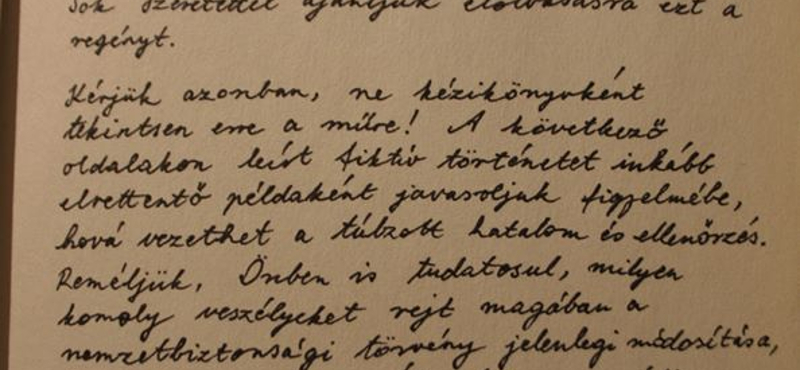 Sok szeretettel ajánljuk elolvasásra ezt a
regényt.
Kérjük azonban, ne kézikönyvként
tekintsen erre a műre! A következő
oldalakon leírt fiktív történetet inkább
elrettentő példaként javasoljuk figyelmébe,
hová vezethet a túlzott hatalom és ellenőrzés.
Reméljük, Önben is tudatosul, milyen
komoly veszélyeket rejt magában a
nemzetbiztonsági törvény jelenlegi módosítása,